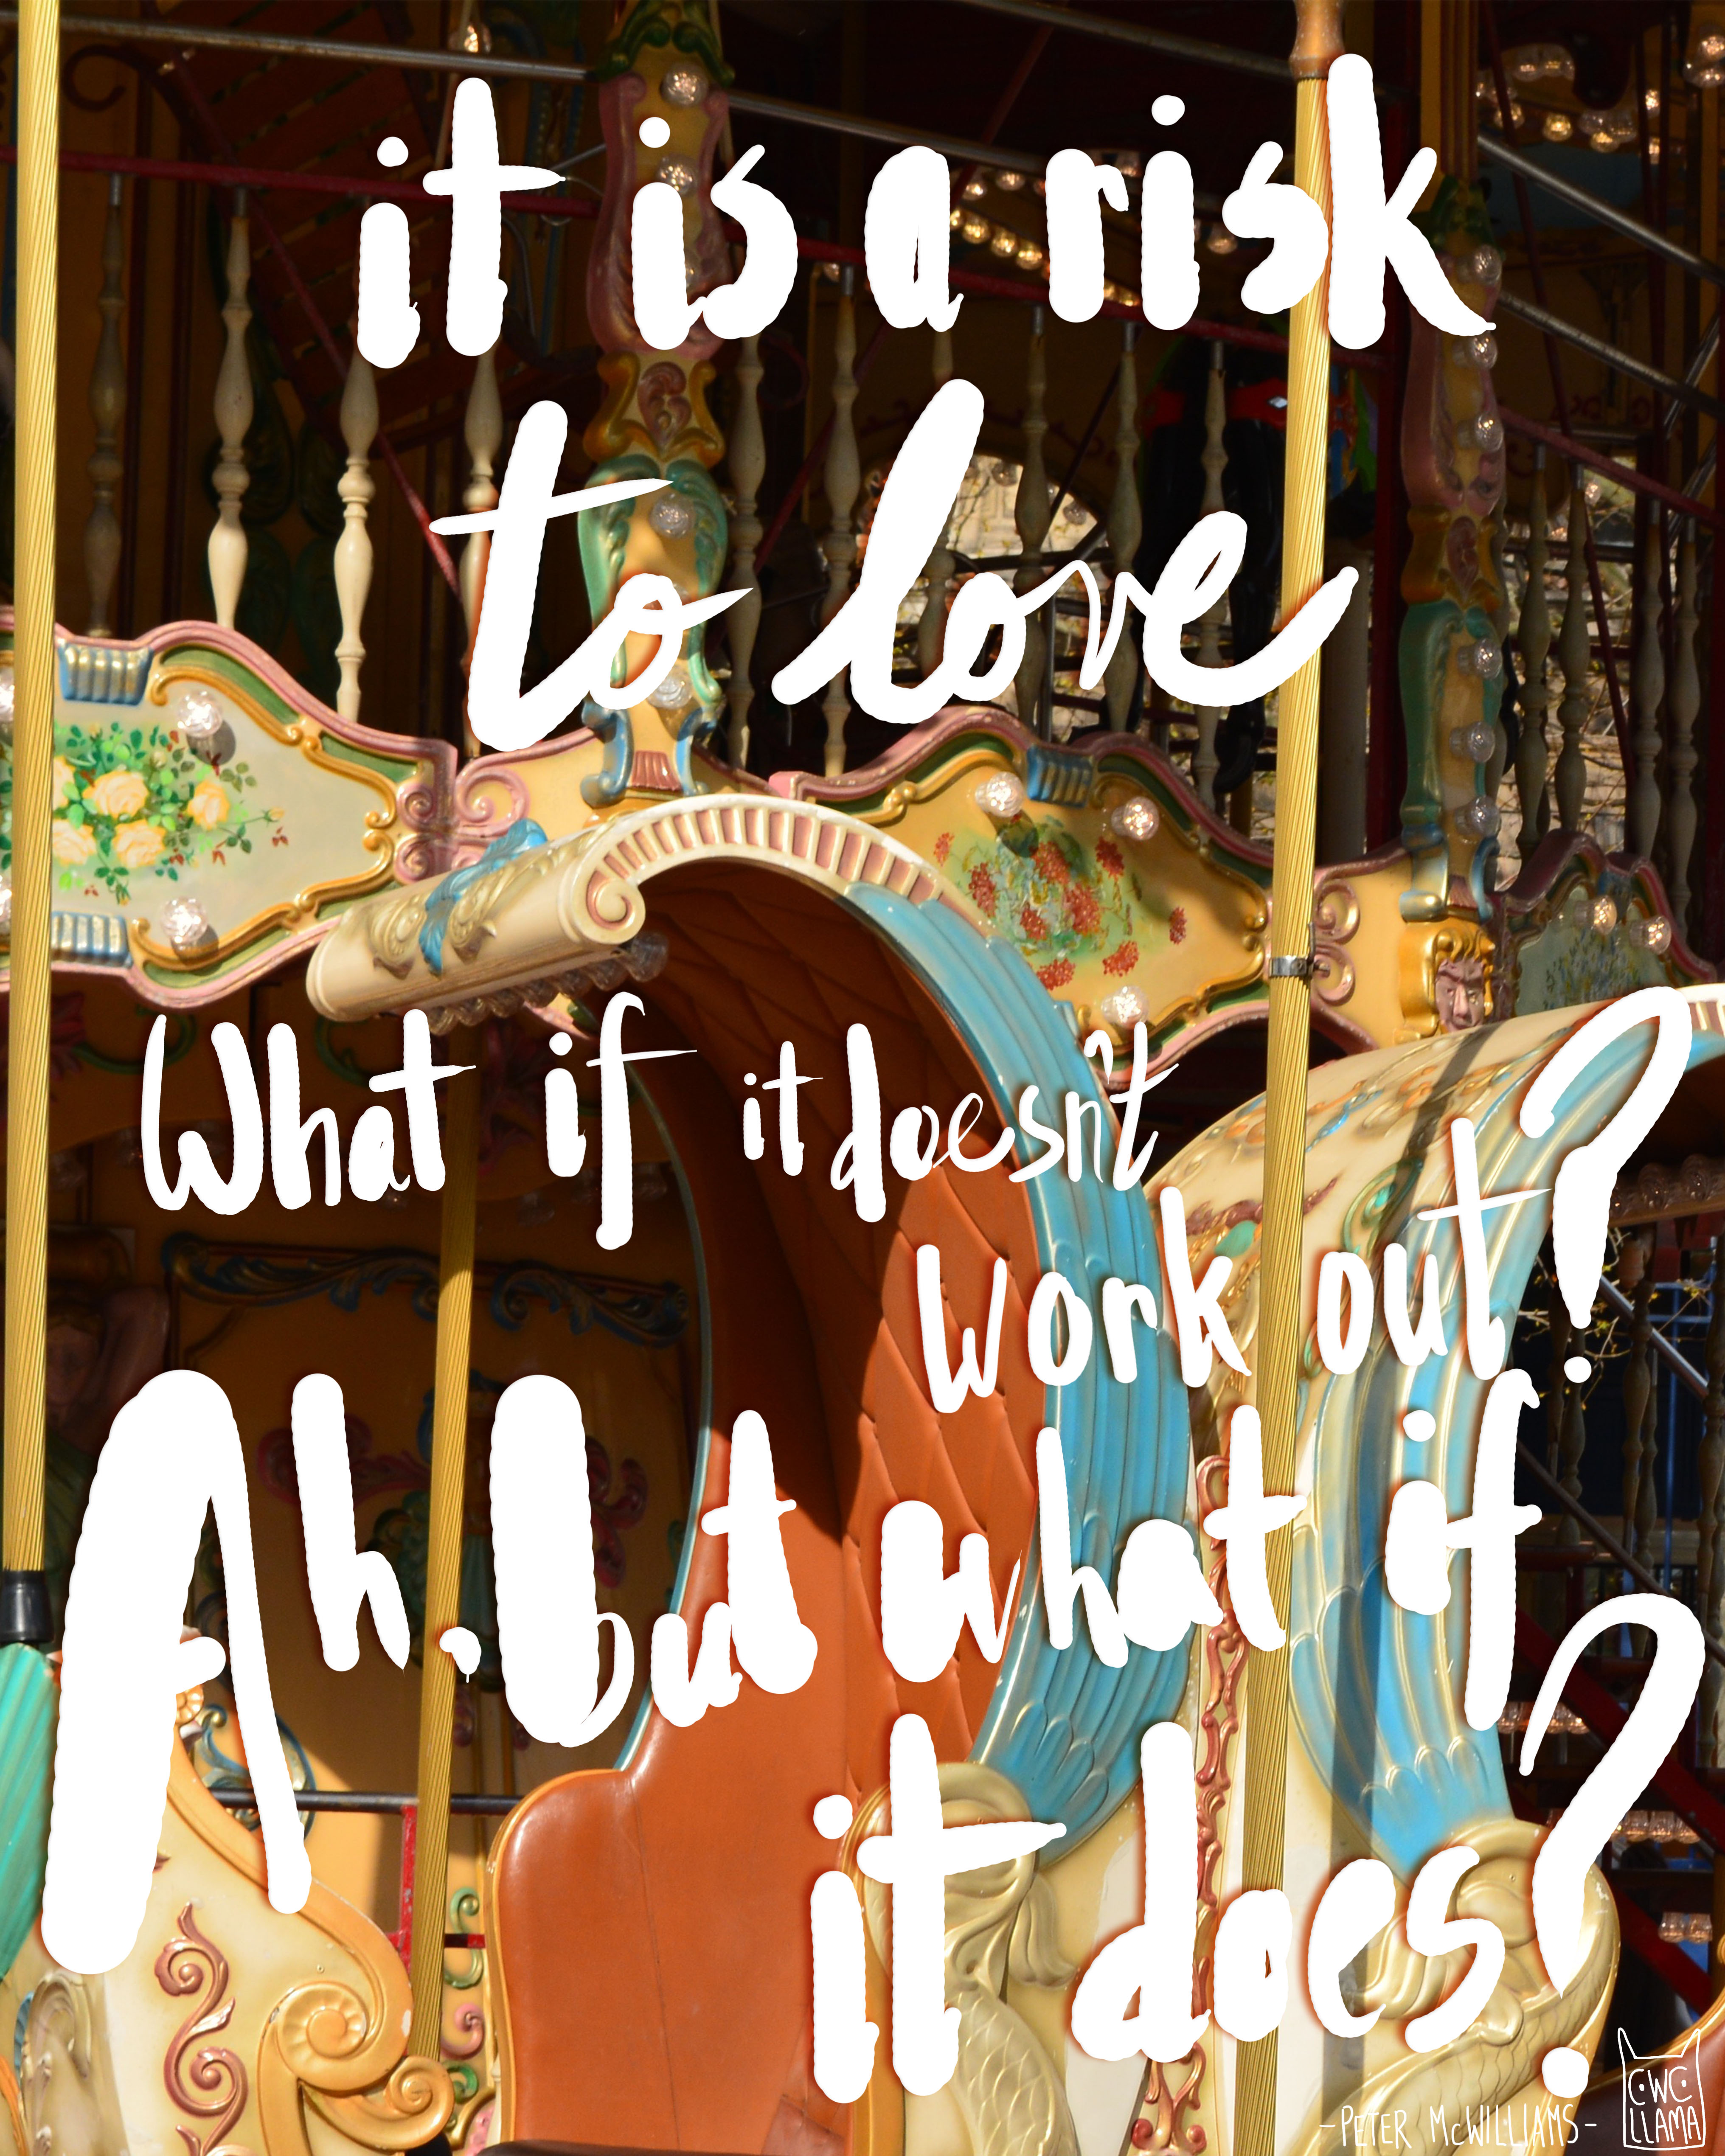 it is a risk
to love
What if it doesn't
work out?
Ah, but what if
it does?
-PETER McWILLIAMS-
CWC
LLAMA